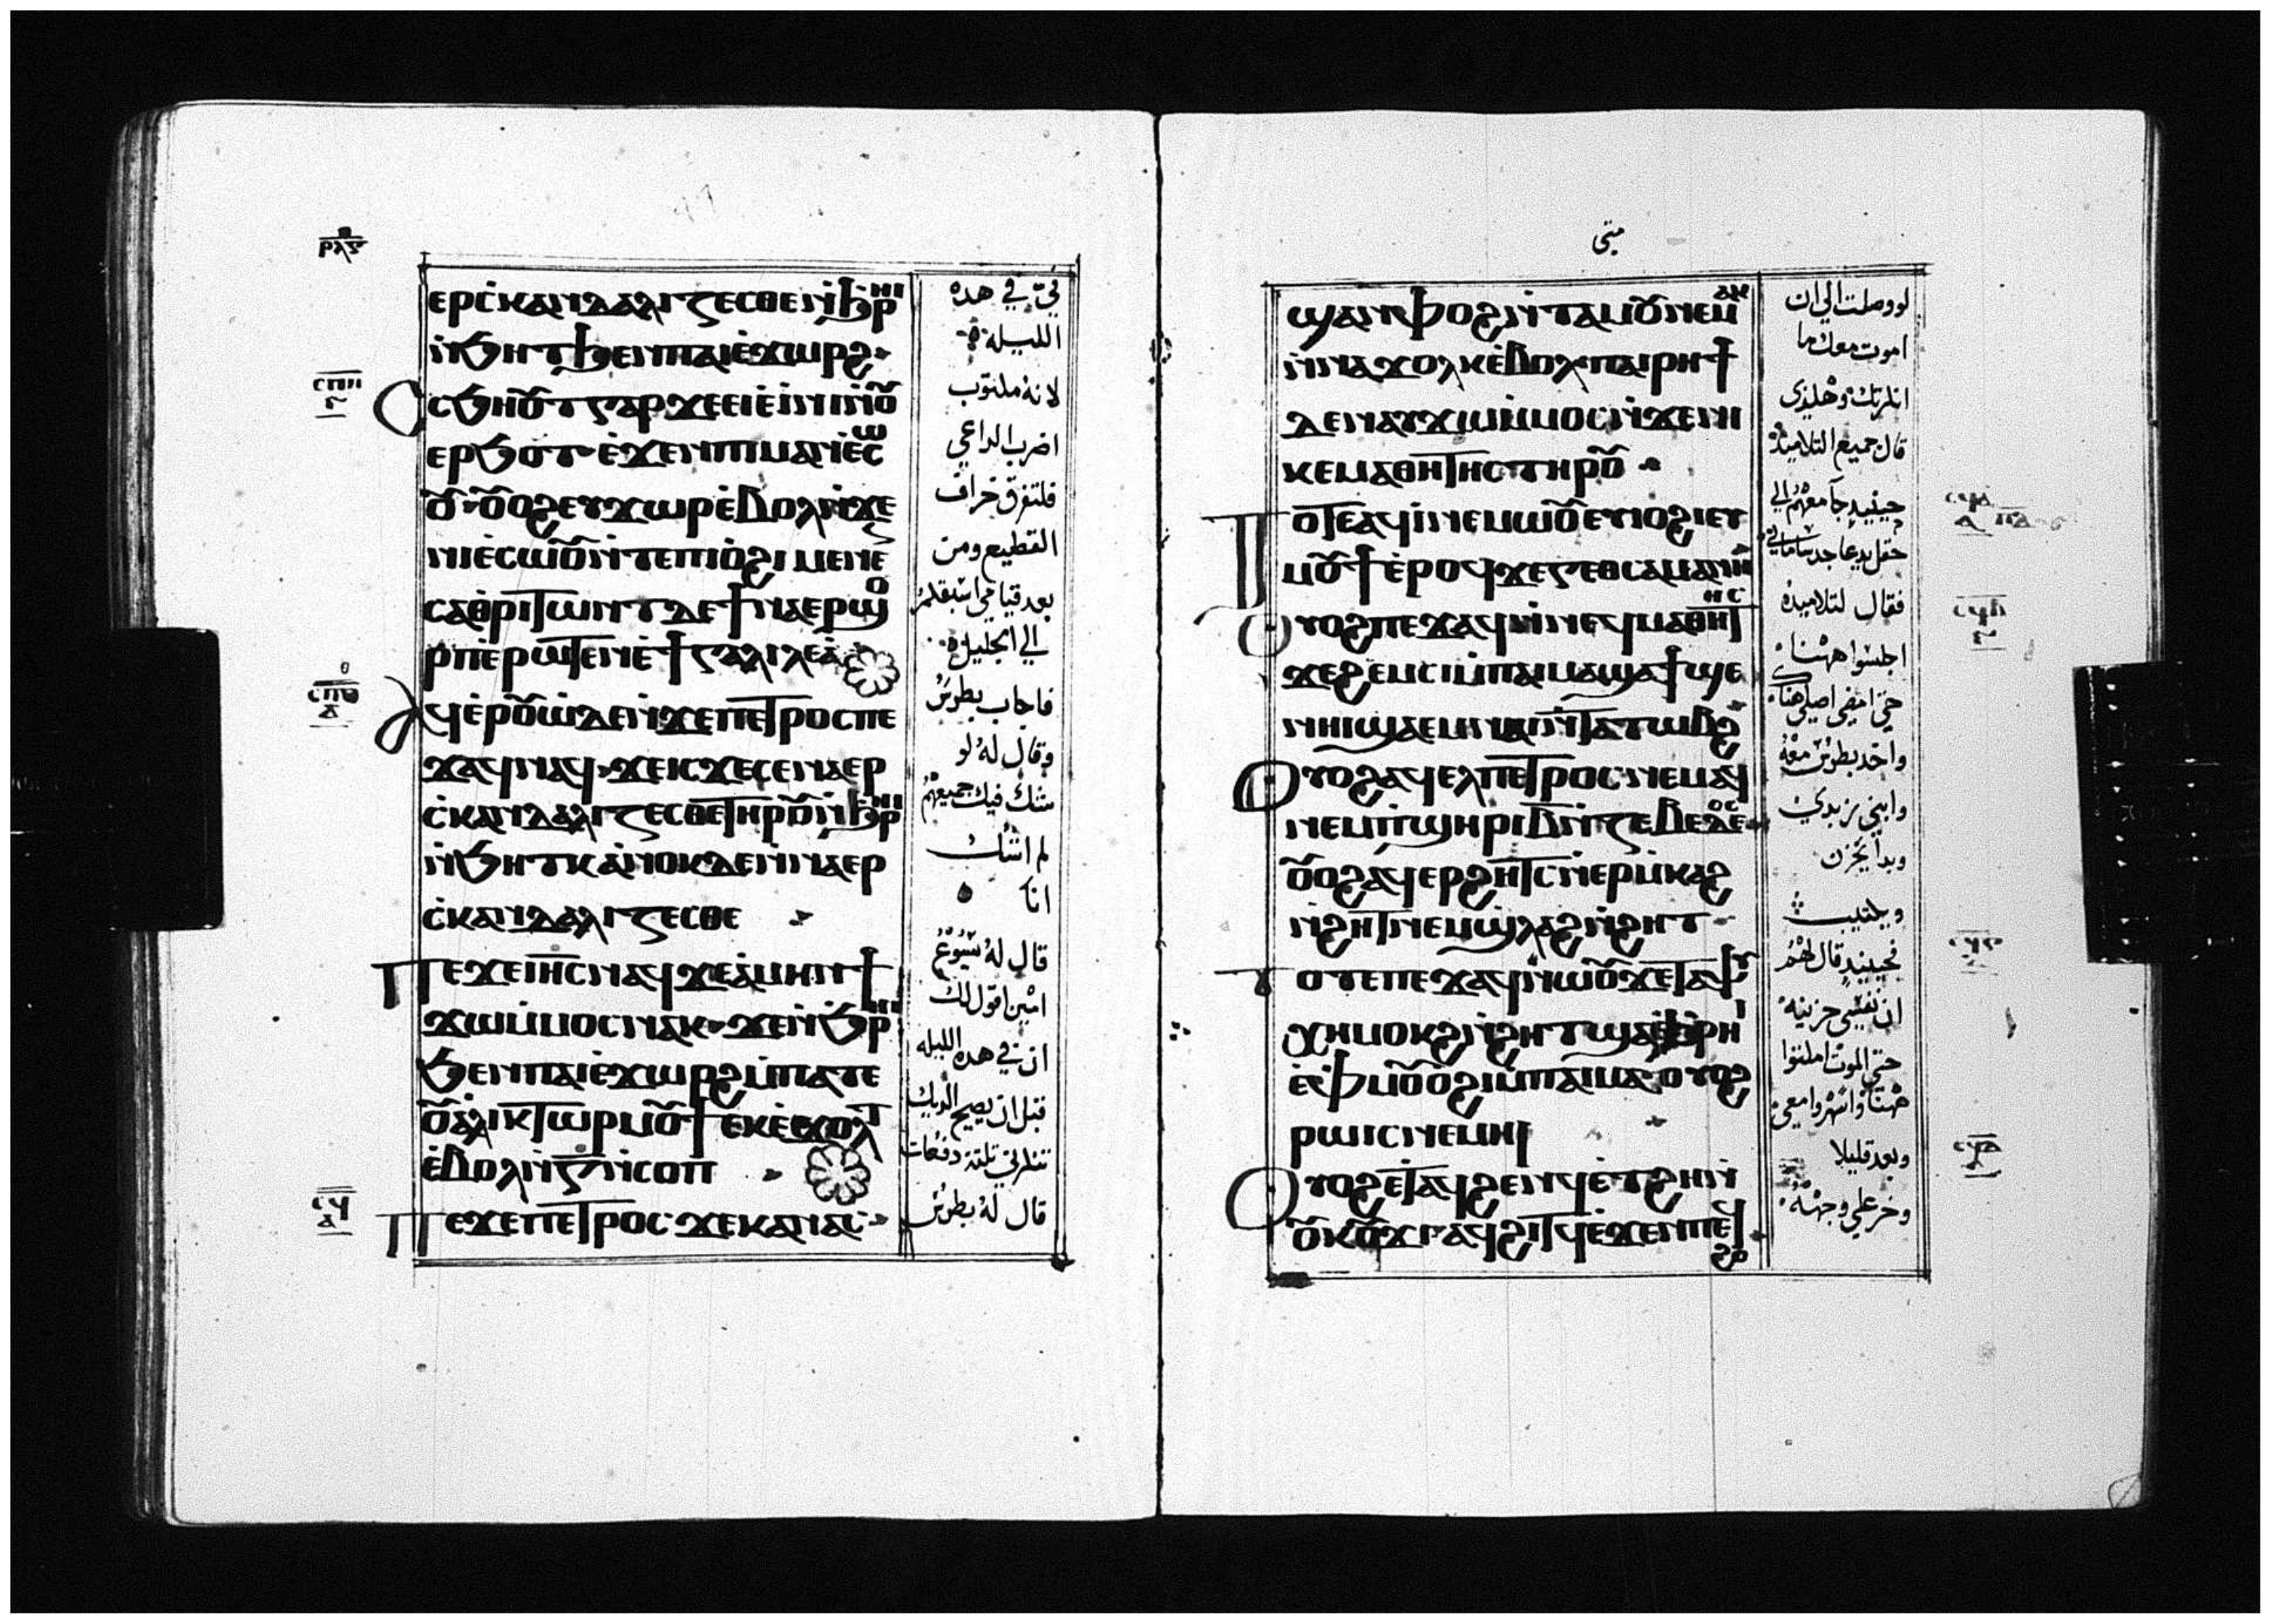 ⲣⲗⲋ
ⲉⲣⲥ̀ⲕⲁⲛⲇⲁⲗⲓⲍⲉⲥⲑⲉ ⲛ̀ϧⲣⲏⲓ
ⲛ̀ϧⲏⲧ ϧⲉⲛ ⲡⲁⲓⲉ̀ϫⲱⲣϩ
ⲥϧⲏⲟ̅ⲧ ⲅⲁⲣ ϫⲉ ⲉⲓⲉ̀ⲓⲛⲓ ⲛ̀ⲟ̅
ⲉⲣϧⲟⲧ ⲉ̀ϫⲉⲛ ⲡⲓⲙⲁⲛⲉ̀ⲥⲱ
ⲟ̅ ⲟ̅ⲟϩ ⲉⲩϫⲱⲣ ⲉ̀ⲃⲟⲗ ⲛ̀ϫⲉ
ⲛⲓⲉ̀ⲥⲱⲟ̅ ⲛ̀ⲧⲉ ⲡⲓⲟ̀ϩⲓ ⲙⲉⲛⲉ
ⲥⲁⲑⲣⲓⲧⲱⲛⲧ ⲇⲉ ϯⲛⲁⲉⲣϣⲟ
ⲣⲡ ⲉ̀ⲣⲱⲧⲉⲛ ⲉ̀ϯⲅⲁⲗⲓⲗⲉⲁ̀
ⲁϥⲉ̀ⲣⲟ̅ⲱ̀ ⲇⲉ ⲛ̀ϫⲉ ⲡⲉⲧⲣⲟⲥ ⲡⲉ
ϫⲁϥ ⲛⲁϥ ϫⲉ ⲓⲥϫⲉ ⲥⲉⲛⲁⲉⲣ
ⲥ̀ⲕⲁⲛⲇⲁⲗⲓⲍⲉⲥⲑⲉ ⲧⲏⲣⲟ̅ ⲛ̀ϧⲣⲏⲓ
ⲛ̀ϧⲏⲧⲕ ⲁ̀ⲛⲟⲕ ⲇⲉ ⲛ̀ⲛⲁⲉⲣ
ⲥ̀ⲕⲁⲛⲇⲁⲗⲓⲍⲉⲥⲑⲉ
ⲡⲉϫⲉ ⲓⲏ̅ⲥ ⲛⲁϥ ϫⲉ ⲁ̀ⲙⲏⲛ ϯ
ϫⲱ ⲙ̀ⲙⲟⲥ ⲛⲁⲕ ϫⲉ ⲛ̀ϧⲣⲏⲓ
ϧⲉⲛ ⲡⲁⲓⲉ̀ϫⲱⲣϩ ⲙ̀ⲡⲁⲧⲉ
ⲟ̅ⲁ̀ⲗⲓⲕⲧⲱⲣ ⲙⲟ̅ϯ ⲉⲕⲉ̀ϫⲟⲗⲧ
ⲉ̀ⲃⲟⲗ ⲛ̀ⲅ̅ ⲛ̀ⲥⲟⲡ
ⲡⲉϫⲉ ⲡⲉⲧⲣⲟⲥ ϫⲉ ⲕⲁⲛ ⲁⲥ
ⲥⲡⲏ
ⲥⲡⲑ
ⲇ
ⲥϥ
في في هده
الليله
لانه مكتوب
اضرب الراعي
فلتفرق خراف
القطيع ومن
بعد قيامي اسبقكم
الي الجليل
فاجاب بطرس
وقال له لو
شك فيك جميعهم
لم اشك
انا
قال له يسوع
امين اقول لك
ان في هده الليله
قبل ان يصيح الديك
تنكرني تلتة دفعات
قال له بطرس
متى
ϣⲁⲛⲫⲟϩ ⲛ̀ⲧⲁⲙⲟ̅ ⲛⲉⲙⲁⲕ
ⲛ̀ⲛⲁϫⲟⲗⲕ ⲉ̀ⲃⲟⲗ ⲡⲁⲓⲣⲏϯ
ⲇⲉ ⲛⲁⲩϫⲱ ⲙ̀ⲙⲟⲥ ⲛ̀ϫⲉ ⲛⲓ
ⲕⲉⲙⲁⲑⲏⲧⲏⲥ ⲧⲏⲣⲟ̅
ⲧⲟⲧⲉ ⲁϥⲓ̀ ⲛⲉⲙⲱⲟ̅ ⲉⲩⲓⲟϩⲓ ⲉⲩ
ⲙⲟ̅ϯ ⲉ̀ⲣⲟϥ ϫⲉ ⲅⲉⲑⲥⲁⲙⲁⲛⲏ
ⲟⲩⲟϩ ⲡⲉϫⲁϥ ⲛ̀ⲛⲉϥⲙⲁⲑⲏⲧⲏⲥ
ϫⲉ ϩⲉⲙⲥⲓ ⲙ̀ⲡⲁⲓⲙⲁ ϣⲁϯϣⲉ
ⲛⲏⲓ ϣⲁⲉⲙⲛⲁⲓ ⲛ̀ⲧⲁⲧⲱⲃϩ
ⲟⲩⲟϩ ⲁϥⲉⲗ ⲡⲉⲧⲣⲟⲥ ⲛⲉⲙⲁϥ
ⲛⲉⲙ ⲡ̀ϣⲏⲣⲓ ⲃ̅ ⲛ̀ⲍⲉⲃⲉⲇⲉⲟⲥ
ⲟ̅ⲟϩ ⲁϥⲉⲣϩⲏⲧⲥ ⲛ̀ⲉⲣⲙ̀ⲕⲁϩ
ⲛ̀ϩⲏⲧ ⲛⲉⲙ ϣ̀ⲗⲁϩ ⲛ̀ϩⲏⲧ
ⲧⲟⲧⲉ ⲡⲉϫⲁϥ ⲛⲱⲟ̅ ϫⲉ ⲧⲁⲯⲩ
ⲭⲏ ⲙⲟⲕϩ ⲛ̀ϩⲏⲧ ϣⲁ ⲉ̀ϩ̀ⲣⲏⲓ
ⲉ̀ⲫⲙⲟ̅ ⲟ̀ϩⲓ ⲙ̀ⲡⲁⲓⲙⲁ ⲟⲩⲟϩ
ⲣⲱⲓⲥ ⲛⲉⲙⲏⲓ
ⲟⲩⲟϩ ⲉⲧⲁϥϩⲉⲛϥ ⲉ̀ⲧϩⲏ ⲛ̀
ⲟ̅ⲕⲟ̅ϫⲓ ⲁϥϩⲓⲧϥ ⲉ̀ϫⲉⲛ ⲡⲉϥ
ϩⲟ
ⲥϥⲃ
ⲥϥⲇ
لو وصلت الي ان
اموت معك ما
انكرتك وهكذى
قال جميع التلاميذ
حينيد جا معهم الي
فقال لتلاميده
اجلسوا ههنا
حتى امضي اصلي هناك
واخد بطرس معه
وابني زبدي
وبدا يحزن
ويكتيب
فحينيد قال لهم
ان نفسي حزينه
حتى الموت امكثوا
ههنا واسهروا معي
وبعد قليلا
وخر علي وجهه